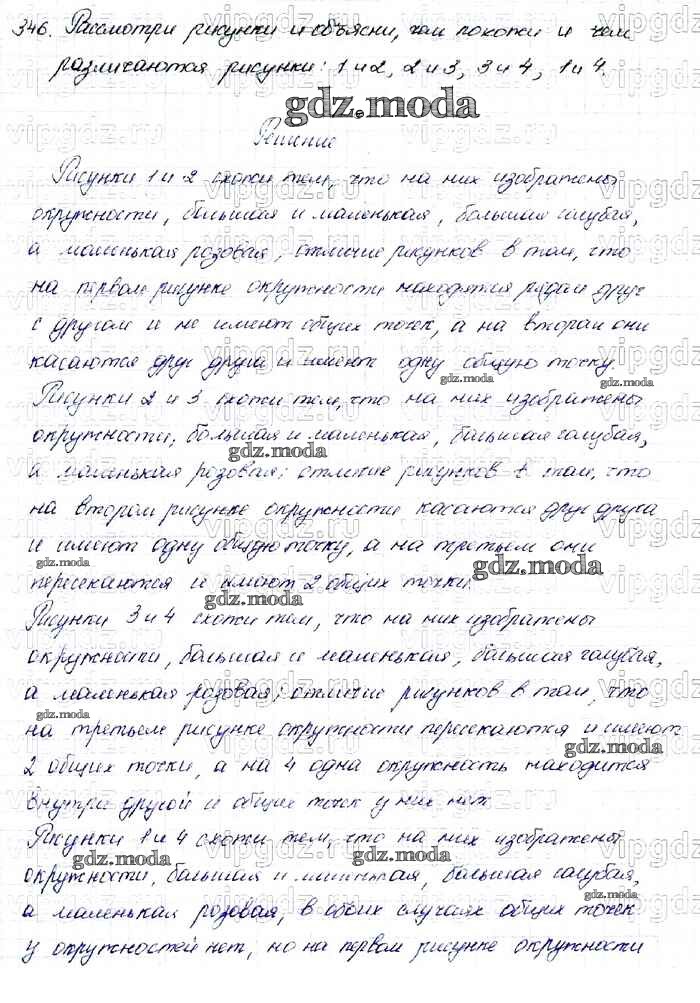 346. Рассмотри рисунки и объясни, чем похожи и чем
различаются рисунки: 1 и 2, 2 и 3, 3 и 4, 1 и 4.
gdz.moda
Решение
Рисунки 1 и 2 схожи тем, что на них изображены
окружности, большая и маленькая, большая голубая,
а маленькая розовая; отличие рисунков в том, что
на первом рисунке окружности находятся рядом друг
с другом и не имеют общих точек, а на втором они
касаются друг друга и имеют одну общую точку.
gdz.moda gdz.moda
Рисунки 2 и 3 схожи тем, что на них изображены
окружности, большая и маленькая, большая голубая,
gdz.moda
а маленькая розовая; отличие рисунков в том, что
на втором рисунке окружности касаются друг друга
и имеют одну общую точку, а на третьем они
gdz.moda
пересекаются и имеют 2 общих точки.
gdz.moda
Рисунки 3 и 4 схожи тем, что на них изображены
окружности, большая и маленькая, большая голубая,
а маленькая розовая; отличие рисунков в том, что
gdz.moda
на третьем рисунке окружности пересекаются и имеют
gdz.moda
2 общих точки, а на 4 одна окружность находится
внутри другой и общих точек у них нет.
Рисунки 1 и 4 схожи тем, что на них изображены
gdz.moda gdz.moda
окружности, большая и маленькая, большая голубая,
gdz.moda
а маленькая розовая, в обоих случаях общих точек
у окружностей нет, но на первом рисунке окружности